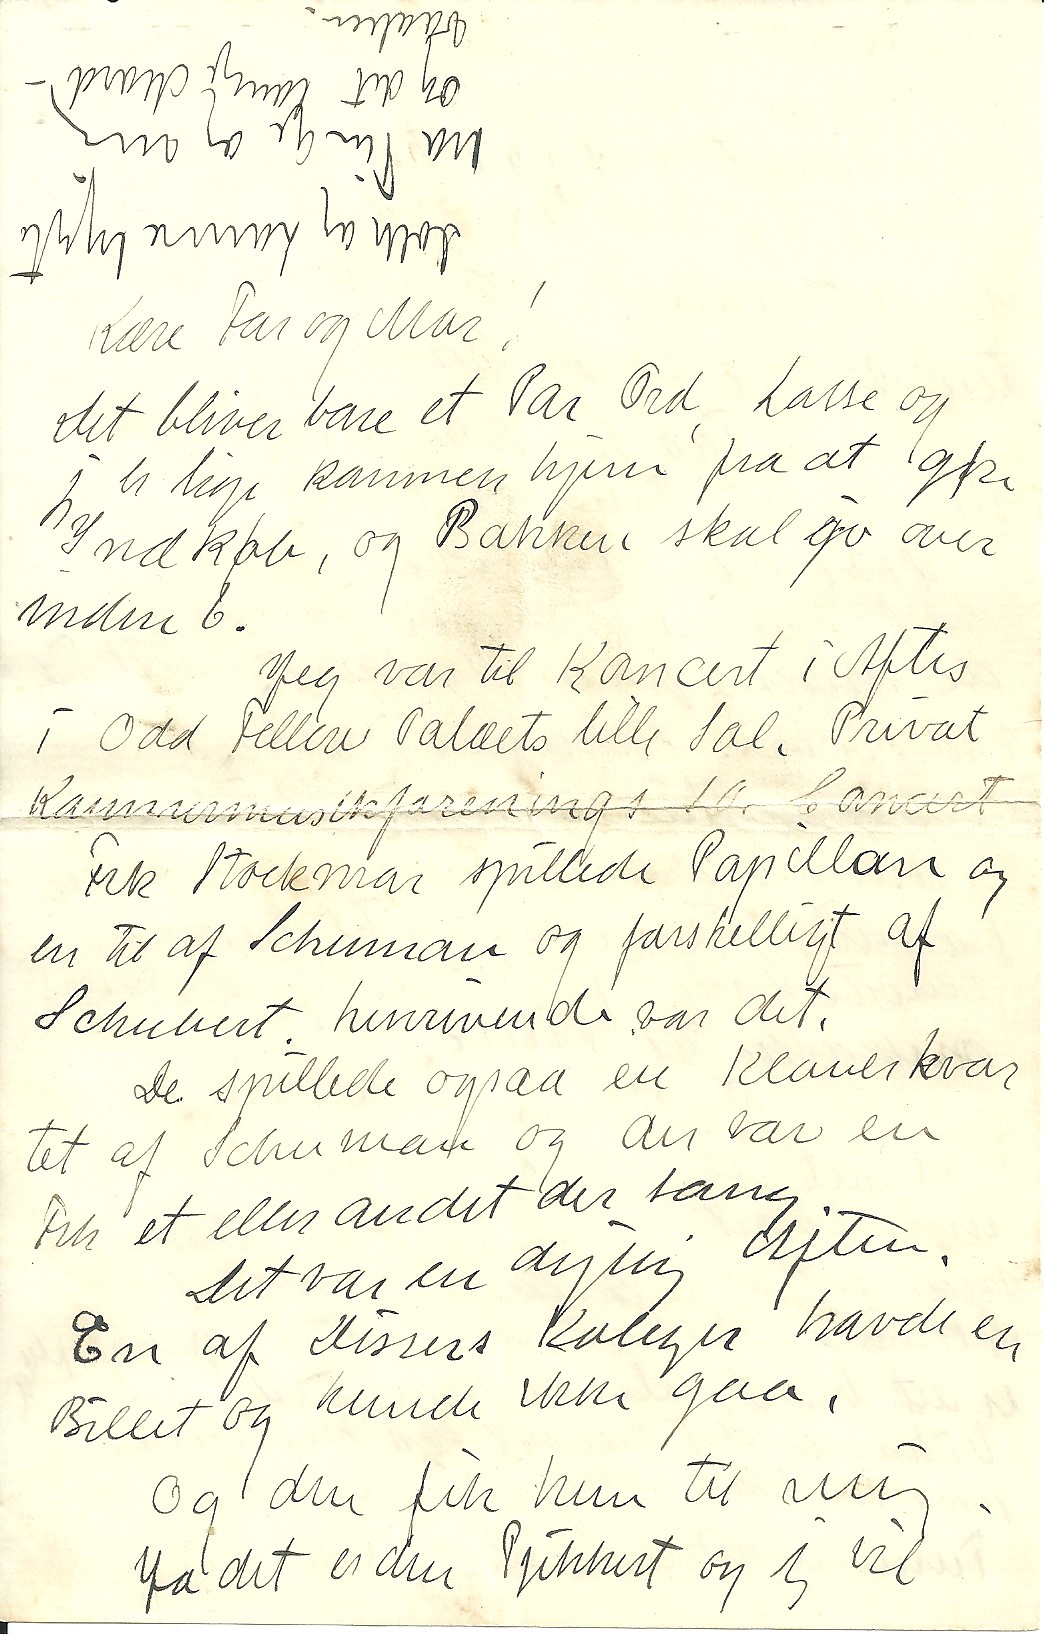 Kære Far og Mor!
Det bliver bare et Par Ord, Lasse og
j er lige kommen hjem fra at gøre
Indkøb, og Pakken skal jo over
inden 6.
Jeg var til Koncert i Aftes
i Odd Fellow Palæets lille Sal. Privat
Kammermusikforenings 10. Concert
Frk Stockmar spillede Papillon og
en til af Schuman og forskelligt af
Schubert. henrivende var det.
De spillede ogsaa en Klaverkvar
tet af Schuman og der var en
Frk et eller andet der sang
Det var en dejlig Aften.
En af Dissers Koleger havde en
Billet og kunde ikke gaa.
Og den fik hun til mig.
Ja det er den og j vil
og samme
fra og
og det lange